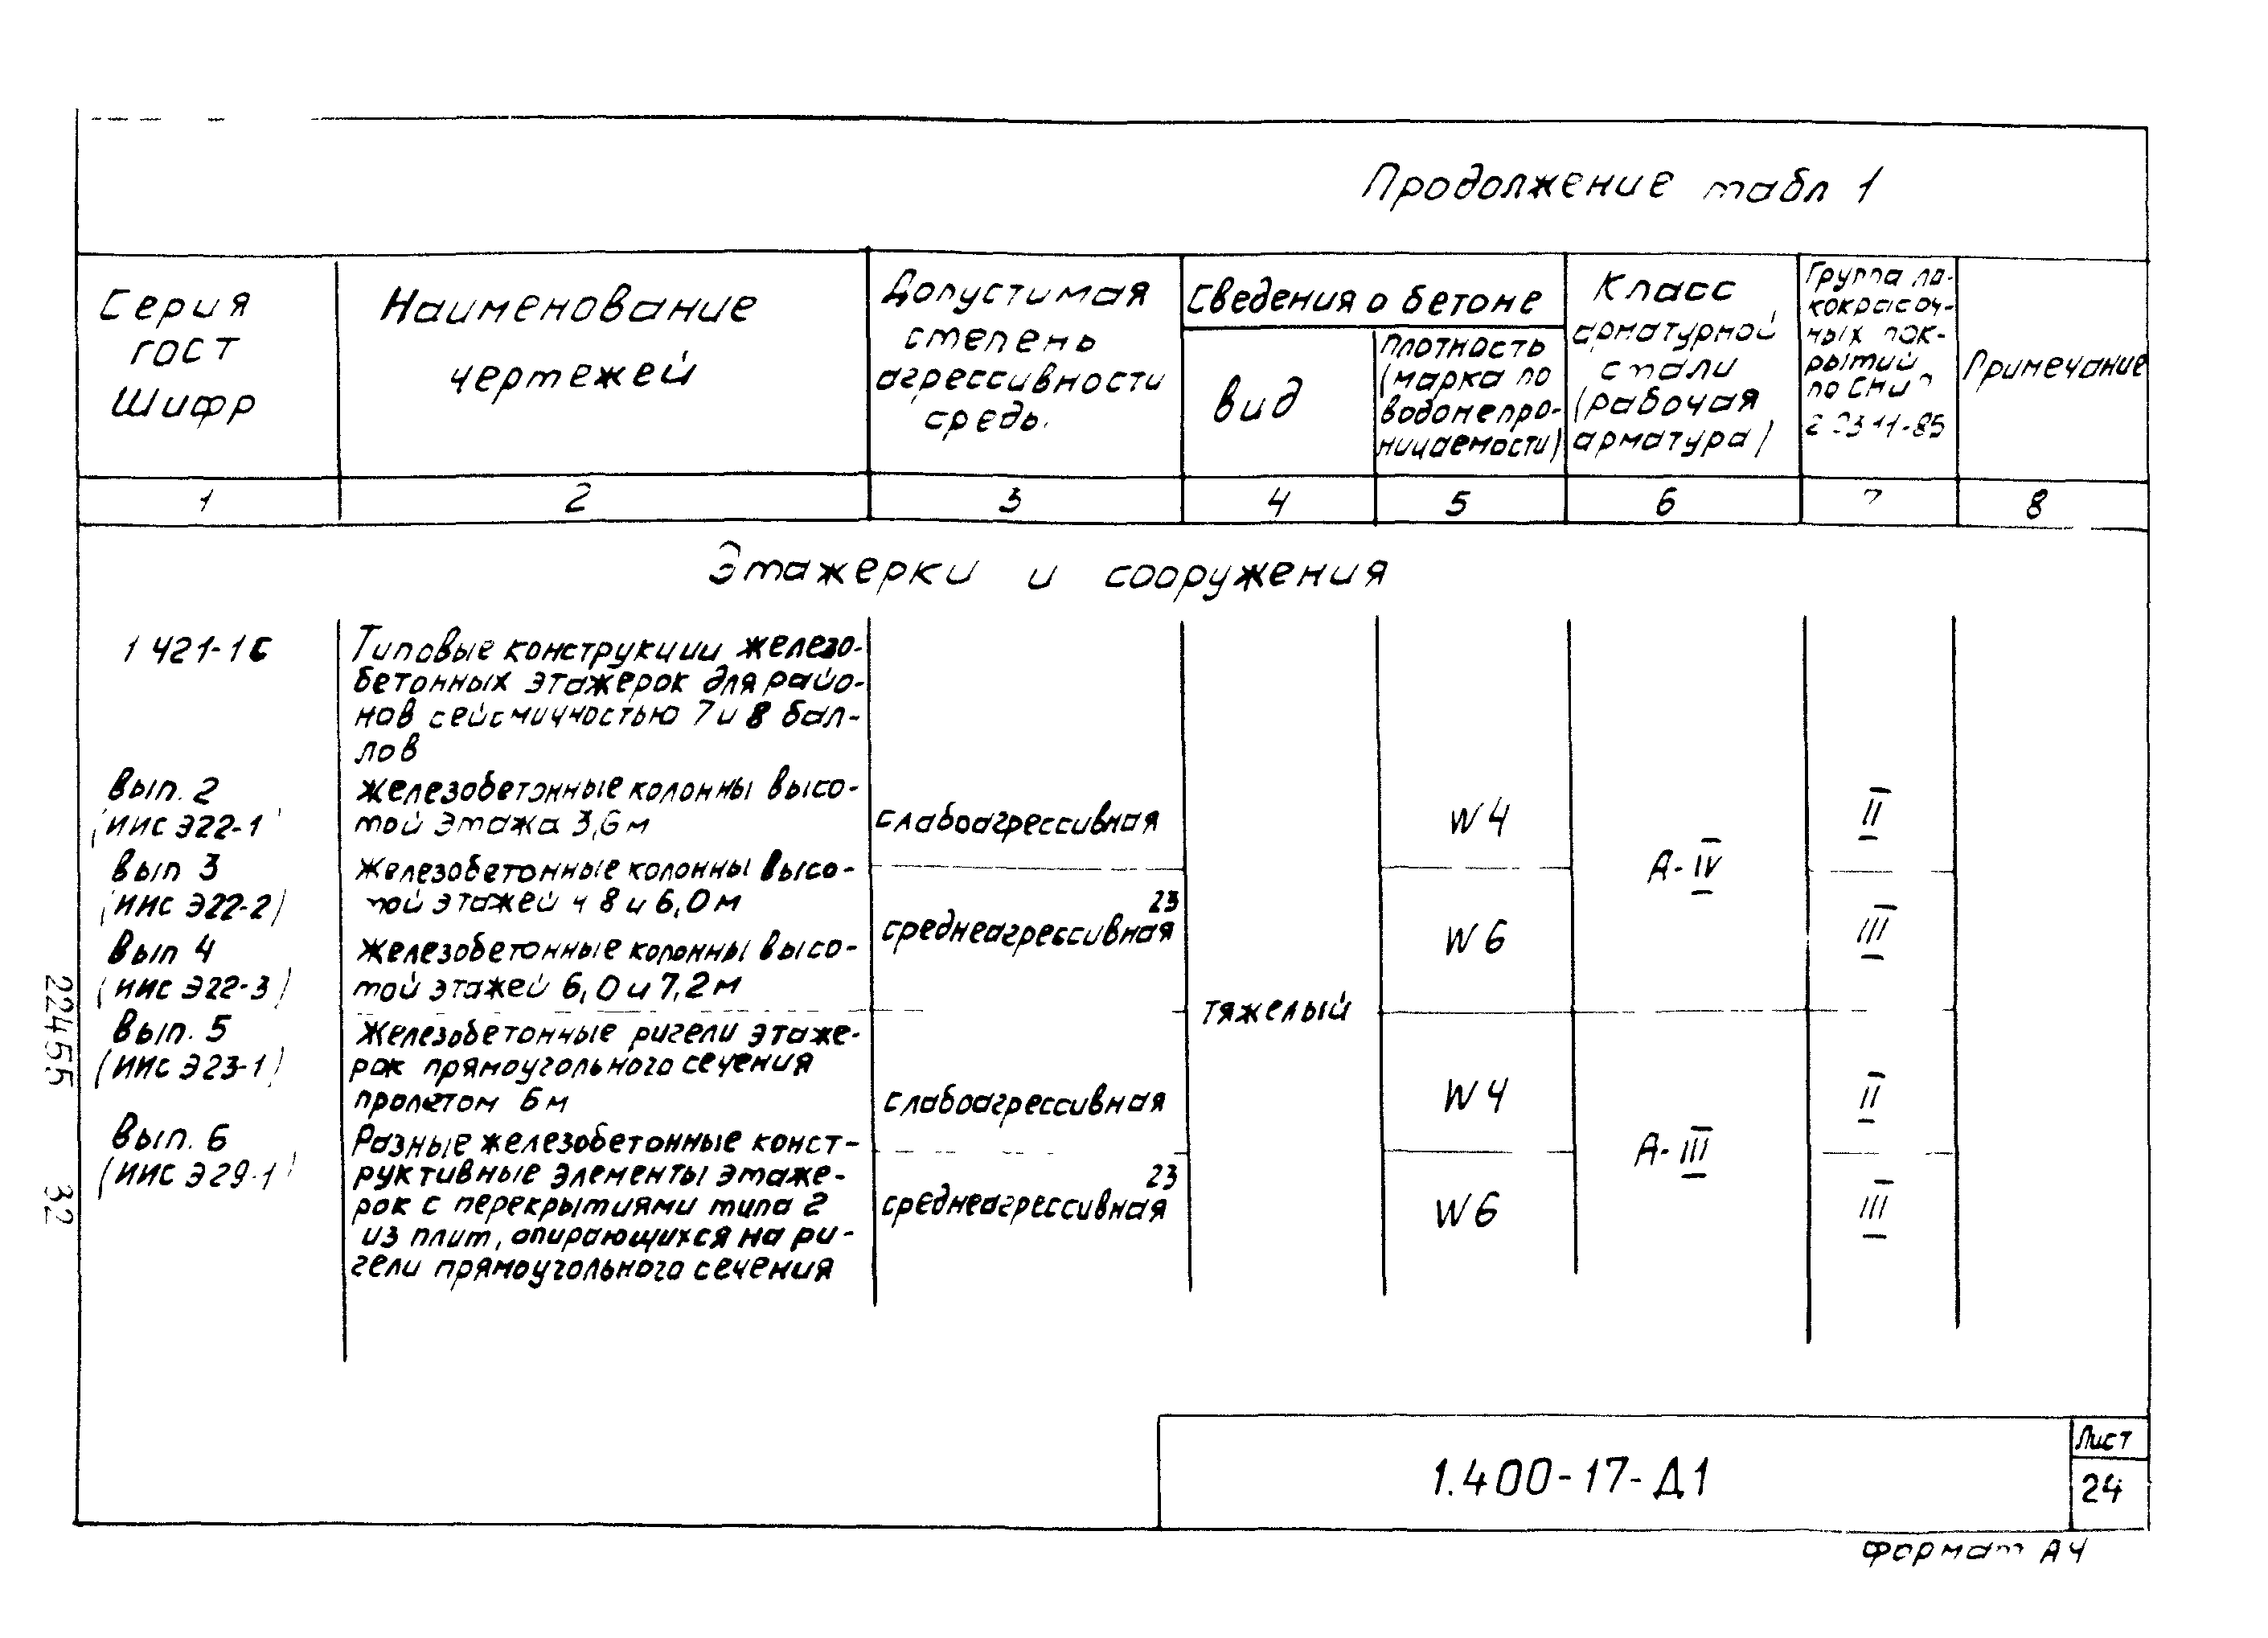 Продолжение табл 1
Серия
гост
Шифр
Наименование
чертежей
Допустимая
степень
агрессивности
среды
Сведения о бетоне
вид
плотность
(марка по
водонепро-
ницаемости)
Класс
арматурной
стали
(рабочая
арматура)
Группа ла-
кокрасоч-
ных пок-
рытий
по СНиП
2 03 11-85
Примечание
1 2 3 4 5 6 7 8
Этажерки и сооружения
1 421-1С
Типовые конструкции железо-
бетонных этажерок для райо-
нов сейсмичностью 7 и 8 бал-
лов
Вып. 2
(ИИС Э22-1)
железобетонные колонны высо-
той этажа 3,6 м
Вып 3
(ИИС Э22-2)
Железобетонные колонны высо-
той этажей 4 8 и 6,0 м
Вып 4
(ИИС Э22-3)
Железобетонные колонны высо-
той этажей 6,0 и 7,2 м
слабоагрессивная
W4
II
А-IV
23
среднеагрессивная
W6
III
тяжелый
Вып. 5
(ИИС Э23-1)
Железобетонные ригели этаже-
рок прямоугольного сечения
пролетом 6 м
Вып. 6
(ИИС Э29-1)
Разные железобетонные конст-
руктивные элементы этаже-
рок с перекрытиями типа 2
из плит, опирающихся на ри-
гели прямоугольного сечения
слабоагрессивная
W4
II
А-III
23
среднеагрессивная
W6
III
22455 32
1.400-17-Д1
Лист
24
формат А4